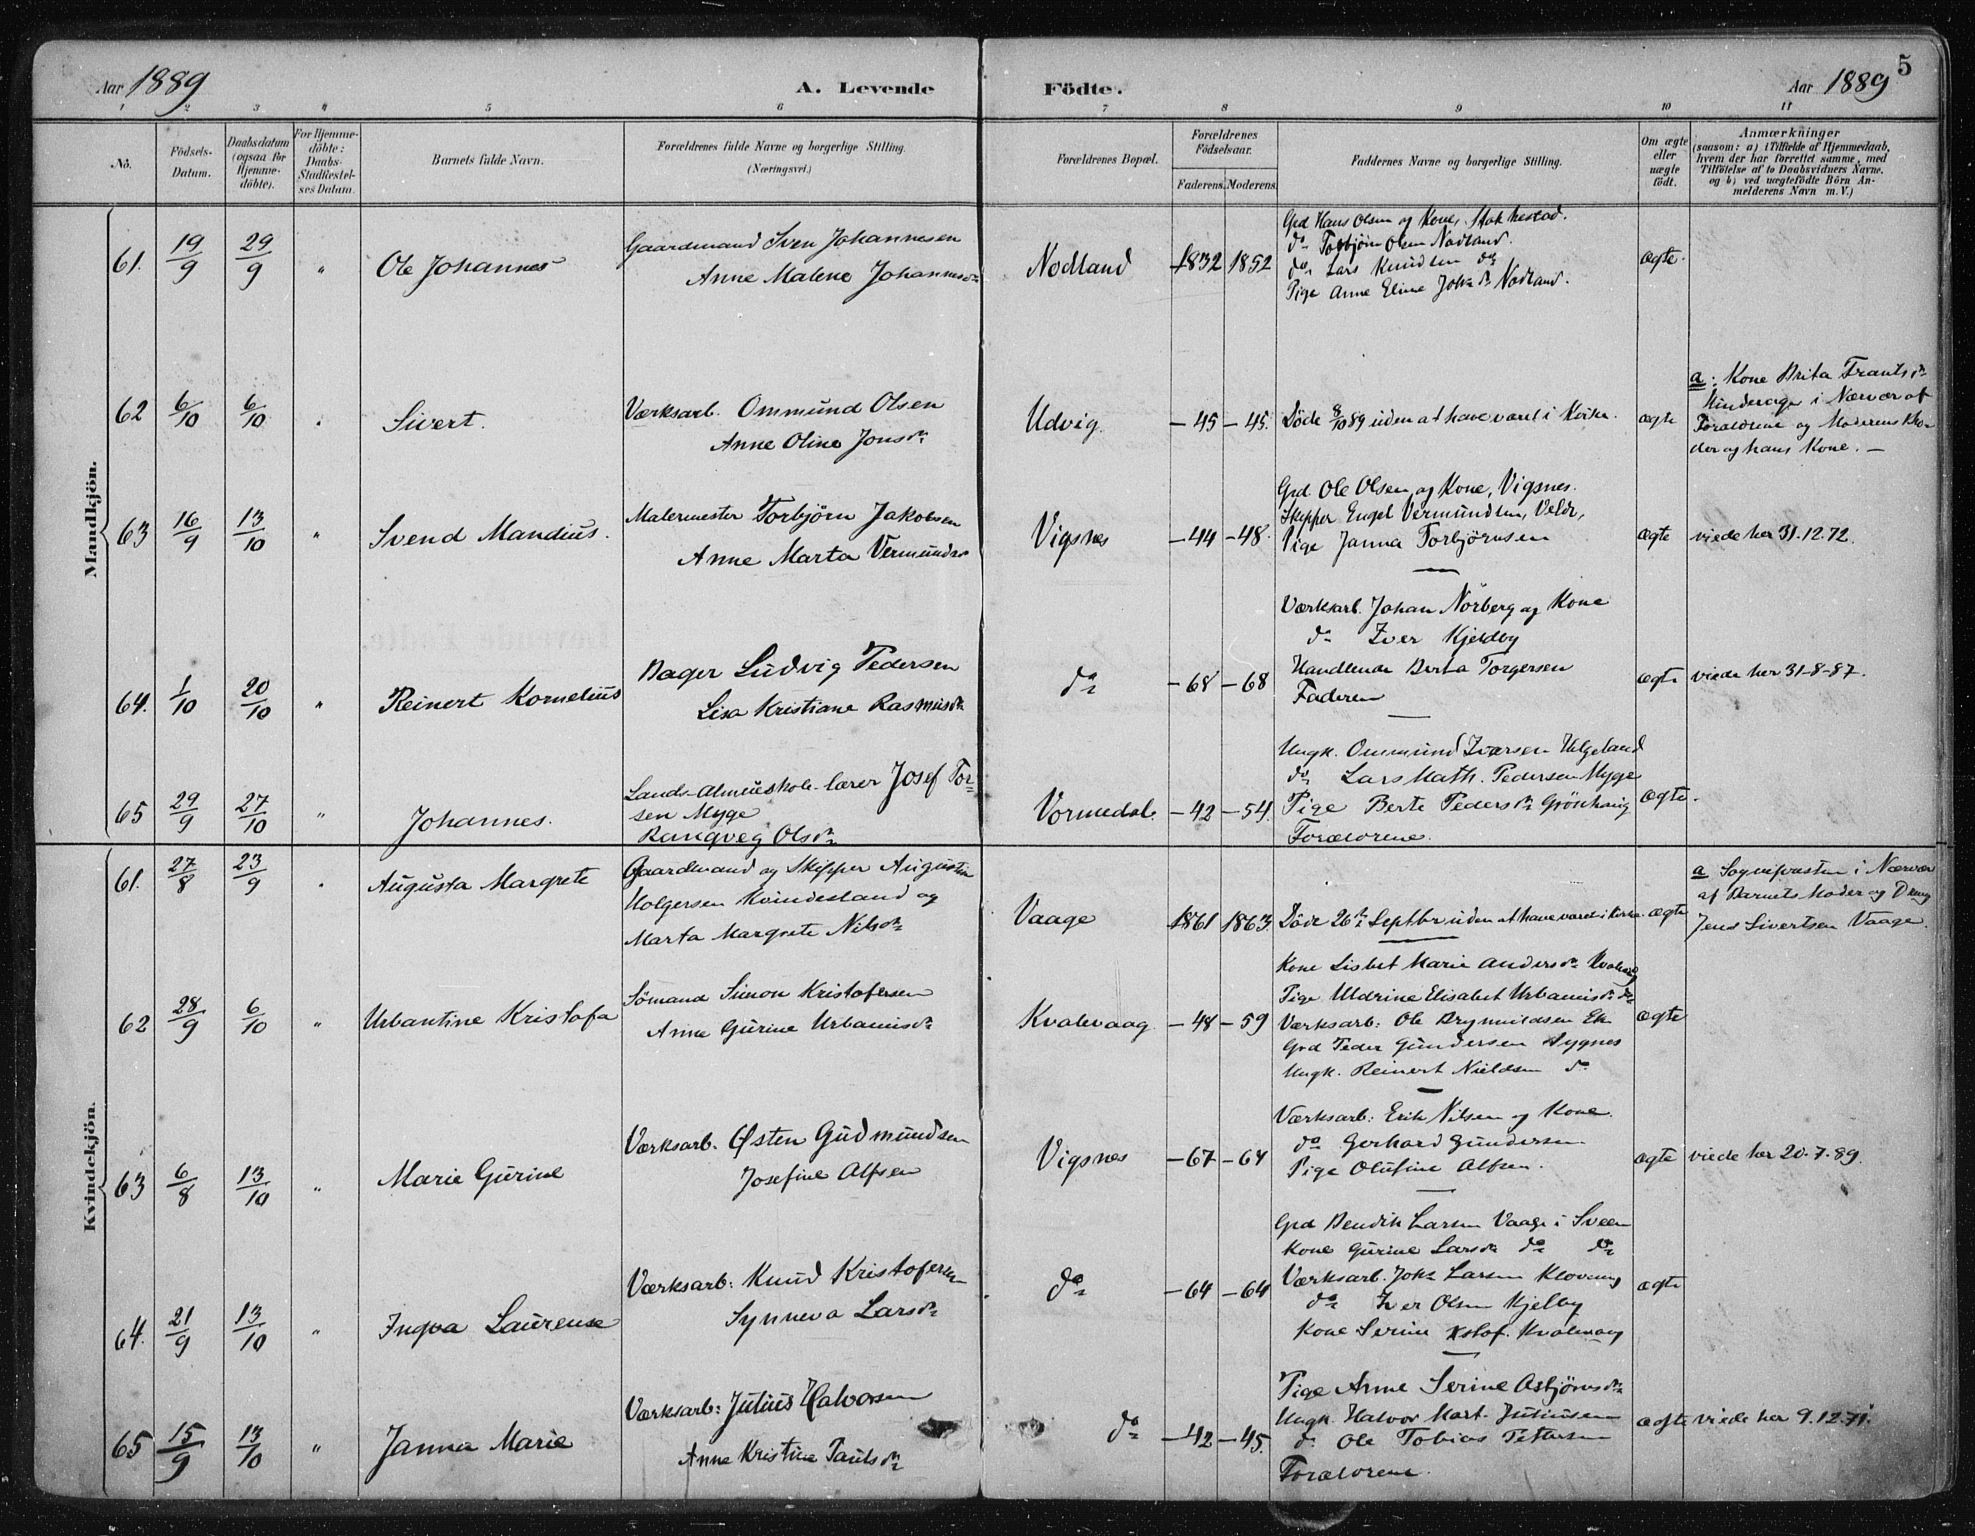 Aar 1889
A. Levende
Födte.
Aar 1889
5
1 2 3 4 5 6 7 8 9 10 11
No.
Födsels-
Datum.
Daabsdatum
(ogsaa för
Hjemme-
döbte).
For Hjemme-
döbte:
Daabs-
Stadfæstel-
ses Datum.
Barnets fulde Navn.
Forældrenes fulde Navne og borgerlige Stilling.
(Næringsvei.)
Forældrenes Bopæl.
Forældrenes
Födselsaar.
Faderens. Moderens.
Faddernes Navne og borgerlige Stilling.
Om ægte
eller
uægte
födt.
Anmærkninger
(saasom: a) i Tilfælde af Hjemmedaab,
hvem der har forrettet samme, med
Tilföielse af to Daabsvidners Navne.
og b) ved uægtefödte Börn An-
melderens Navn m. V.)
Mandkjön.
61. 19/9 29/9 " Ole Johannes
Gaardmand Sven Johannesen
Anne Malene Johannesdr
Nodland 1832 1852
Grd Hans Olsen og Kone, Stokkestad.
do Torbjörn Olsen Nodland.
do Lars Knudsen do
Pige Anne Eline Johs dr Nodland.
ægte.
62 6/10 6/10 " Sivert.
Værksarb. Ommund Olsen
Anne Oline Jonsdr
Udvig. -45 -45.
Döde 8/10 89 uden at have været i Kirke.
ægte
a: Kone Brita Frantsdr
i Nærvær af
Forældrene og Moderens Bro-
der og hans Kone. —
63 16/9 13/10 " Svend Mandius.
Malermester Torbjörn Jakobsen
Anne Marta Vermundsdr
Vigsnes -44 -48.
Grd. Ole Olsen og Kone, Vigsnes.
Skipper Engel Vermundsen, Velde,
Pige Janna Torbjörnsen
ægte viede her 31.12.72.
64. 1/10 20/10 " Reinert Kornelius
Bager Ludvig Pedersen
Lisa Kristiane Rasmusdr
do -68 -68
Værksarb. Johan Nörberg og Kone
do Iver Kjeldby
Handlende Berta Torgersen
Faderen
ægte viede her 31-8-87.
65 29/9 27/10 " Johannes.
Lands-Almueskole-lærer Josef Tor-
sen Myge
Rangveg Olsdr
Vormedal. -42 -54.
Ungk. Ommund Iversen Helgeland
do Lars Math. Pedersen Myge
Pige Berte Pedersdr Grönhaug
Forældrene.
ægte.
Kvindekjön.
61. 27/8 23/9 " Augusta Margrete
Gaardmand og Skipper Augustin
Holgersen Kvindesland og
Marta Margrete Nilsdr
Vaage 1861 1863.
Döde 26de Septbr uden at have været i Kirke.
ægte
a Sognepresten i Nærvær
af Barnets Moder og Dreng
Jens Sivertsen Vaage.
62 28/9 6/10 " Urbantine Kristofa
Sömand Simon Kristofersen
Anne Gurine Urbanusdr
Kvalevaag. -48 -59
Kone Lisbet Marie Andersdr Kvalevaag
Pige Uldrine Elisabet Urbanusdr do
Værksarb: Ole Brynildsen Ek
Grd Peder Gundersen Sygnes
Ungk. Reinert Nieldsen do
ægte
63 6/8 13/10 " Marie Gurine
Værksarb. Østen Gudmundsen
Josefine Alfsen
Vigsnes -67 -64
Værksarb: Erik Nilsen og Kone.
do Gerhard Gundersen
Pige Olufine Alfsen.
ægte viede her 20.7.89.
64. 21/9 13/10 " Ingva Laurense
Værksarb: Knud Kristofersen
Synneva Larsdr
do -64 -64
Grd Bendik Larsen Vaage i Sveen
Kone Gurine Larsdr do do
Værksarb. Johs Larsen Klovning
do Iver Olsen Kjelby
Kone Serine Kstof. Kvalevaag
ægte
65 15/9 13/10 " Janna Marie
Værksarb: Julius Halvorsen
Anne Kristine Paulsdr
do -42 -45.
Pige Anne Serine Asbjörnsdr
Ungk. Halvor Mart. Juliusen
do Ole Tobias Pettersen
Forældrene.
ægte viede her 9.12.71.